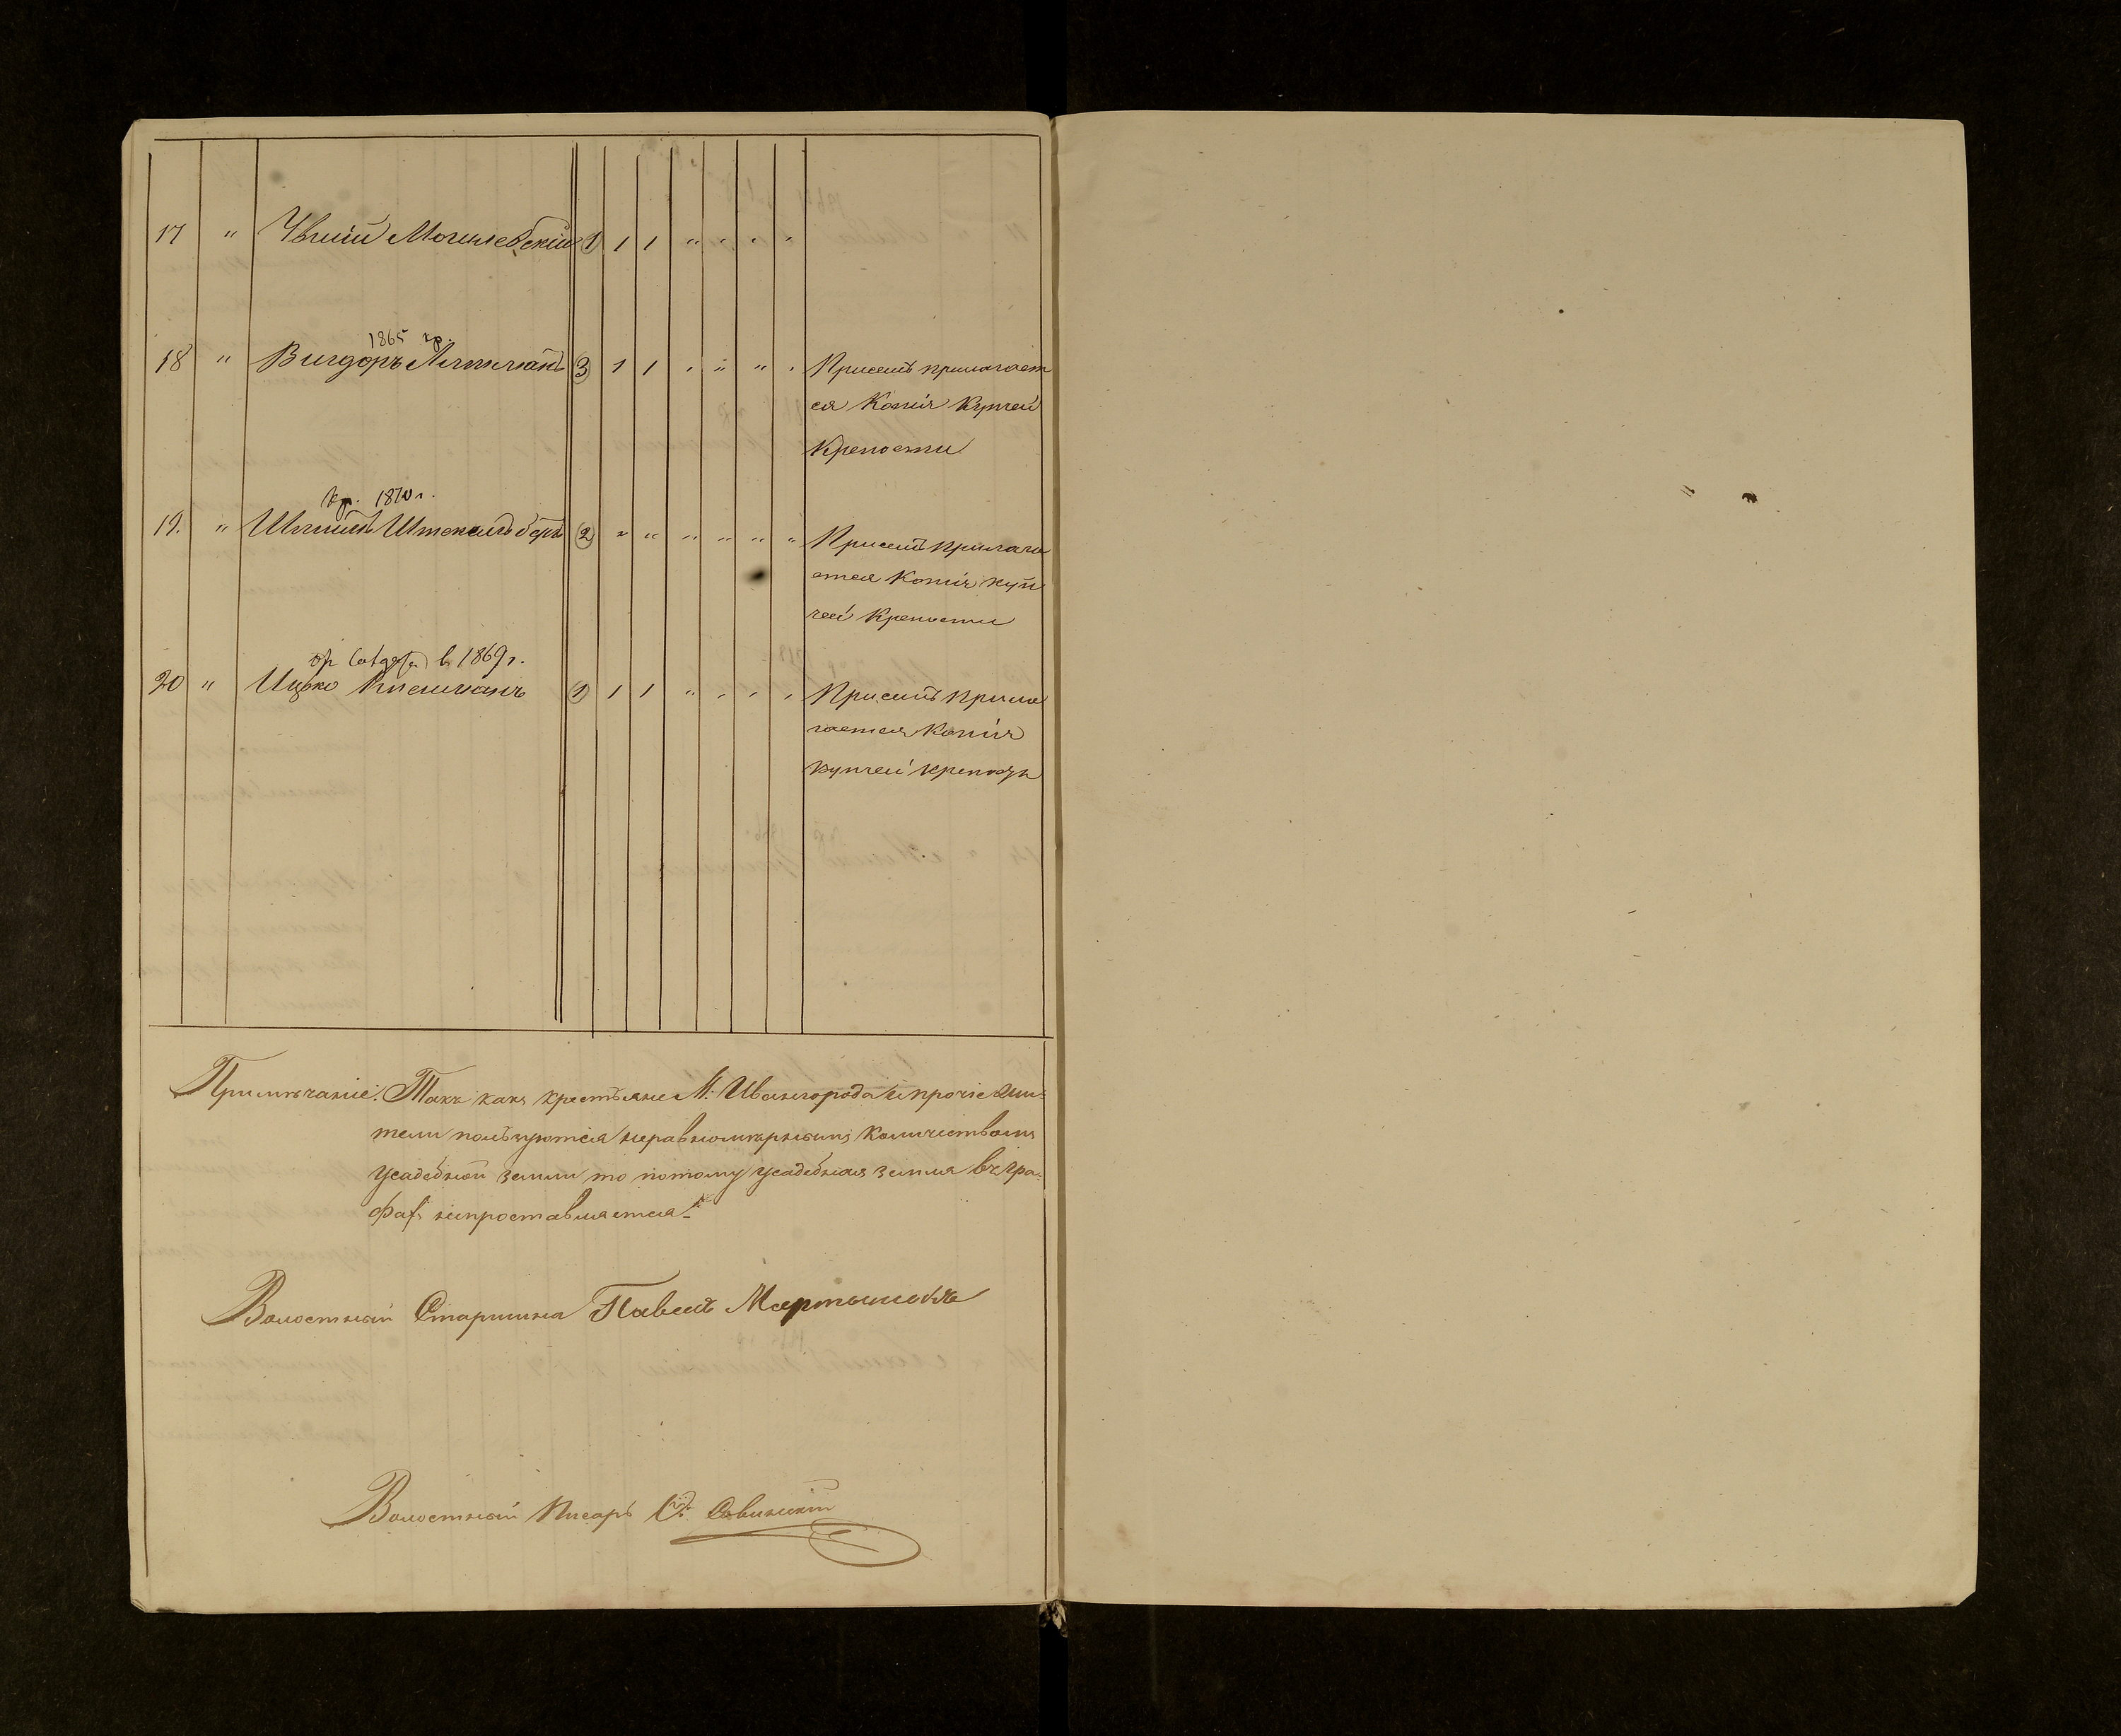 17 " Могилевскій 1 1 1 " " " "
1865 кр.
18 " Вигдоръ 3 1 1 " " " " Присемъ прилагает
ся Копія Купчей
Крепости
кр. 1870 г.
19. " 2 " " " " " " Присемъ прилага
ется Копія куп
чей Крепости
в 1869 г.
20 " Ицько 1 1 1 " " " " Присемъ прила
гается Копія
купчей крепости
Примѣчаніе: Такъ какъ крестьяне М: Ивангорода и прочіе жи-
тели пользуются неравномѣрнымъ Количествомъ
усадебной земли то потому усадебная земля въ гра-
фах непроставляется.
Волостный Старшина Павелъ Мартынокъ
Волостный Писарь Савинскій